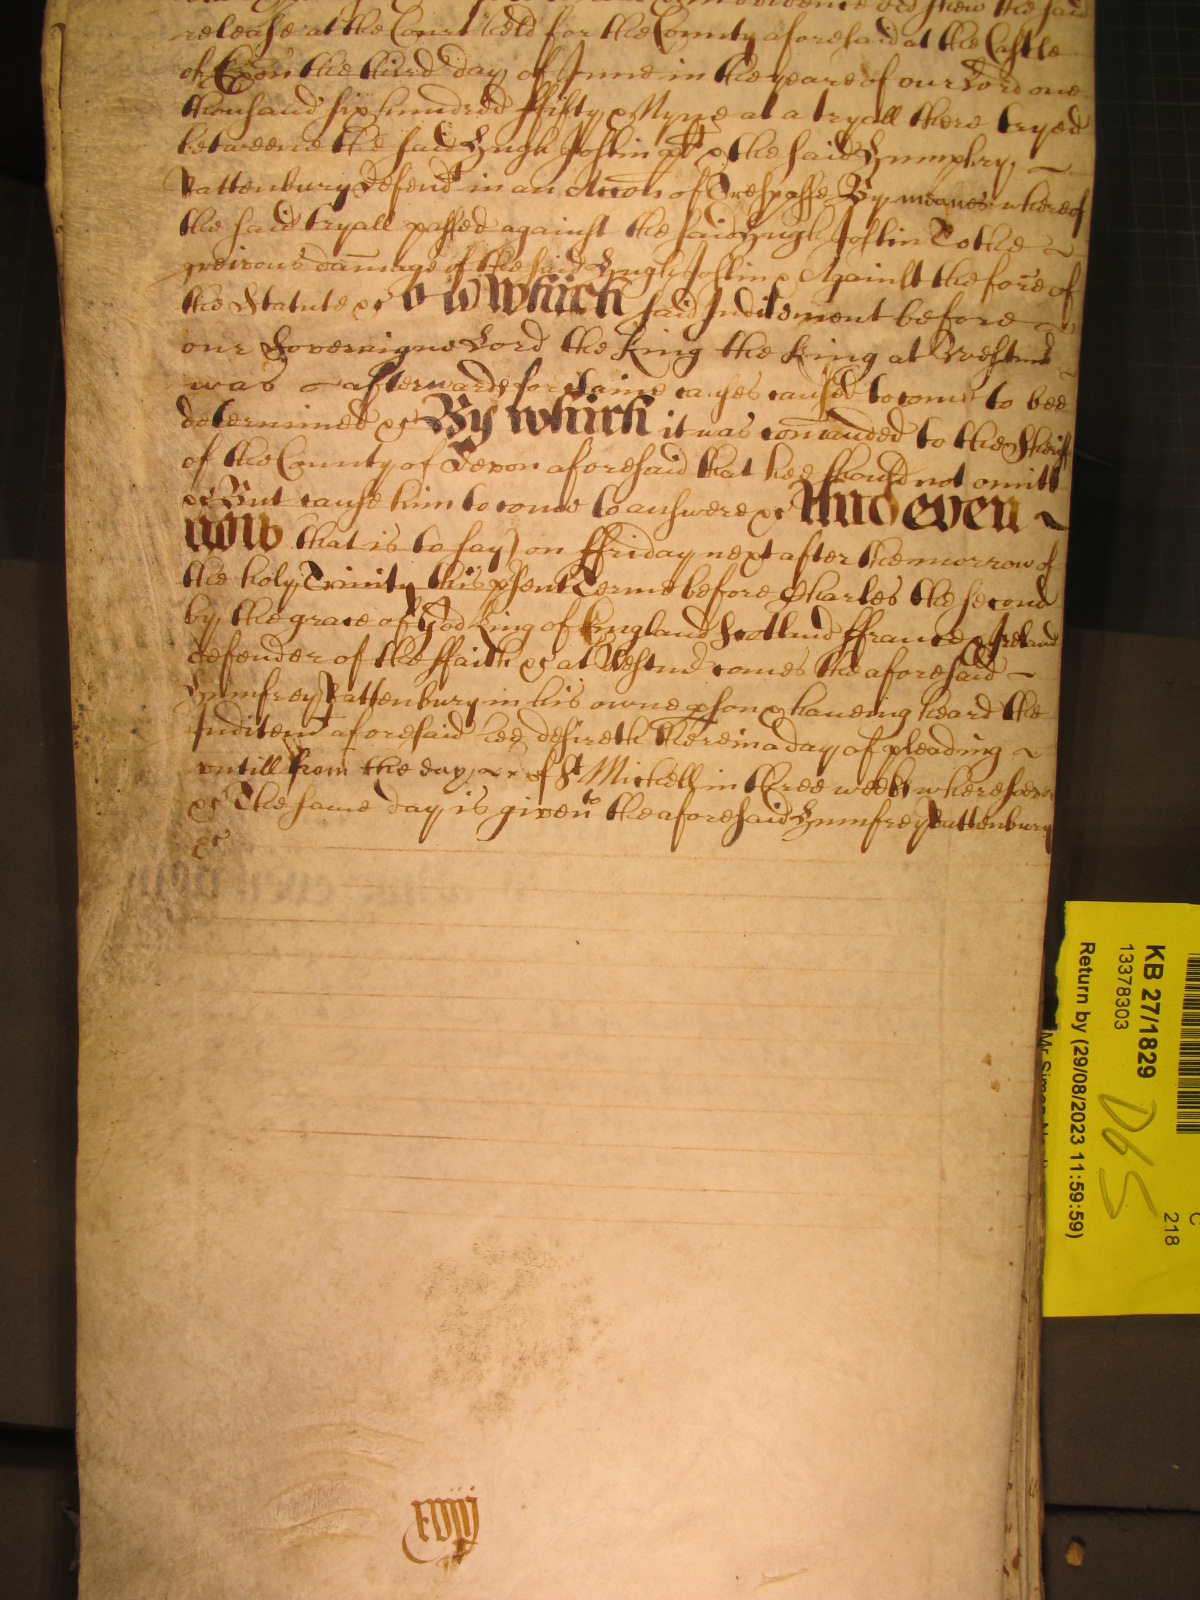 in evidence did shew the said
release at the Court held for the County aforesaid at the Castle
of Exon the third day of June in the yeare of our Lord one
thousand six hundred ffifty & Nyne at a tryall there tryed
betweene the said Hugh Joslin plt & the said Humphry
Battenbury Defendt in an Accon of Trespasse By meanes whereof
the said tryall passed against the said Hugh Joslin To the
greivous damage of the said Hugh Joslin & Against the forme of
the Statute &c To which said Inditement before
our Soveraigne Lord the King the King at Westmr
was afterwards for certaine causes caused to come to bee
determined &c By which it was comanded to the Sheriff
of the County of Devon aforesaid that hee should not omitt
&c But cause him to come to answere &c And even
now that is to say on ffriday next after the morrow of
the holy Trinity this psent Terme before Charles the second
by the grace of God King of England Scotland ffrance & Ireland
defender of the ffaith &c at Westmr comes the aforesaid
Humfrey Battenbury in his owne pson & haveing heard the
Inditemt aforesaid hee desireth thereina day of pleading
untill from the day of St Michell in three weeks wheresoever
&c The same day is given to the aforesaid Humfrey Battenbury
&c
xviij
KB 27/1829
13378303
Return by (29/08/2023 11:59:59)
D65
218
C